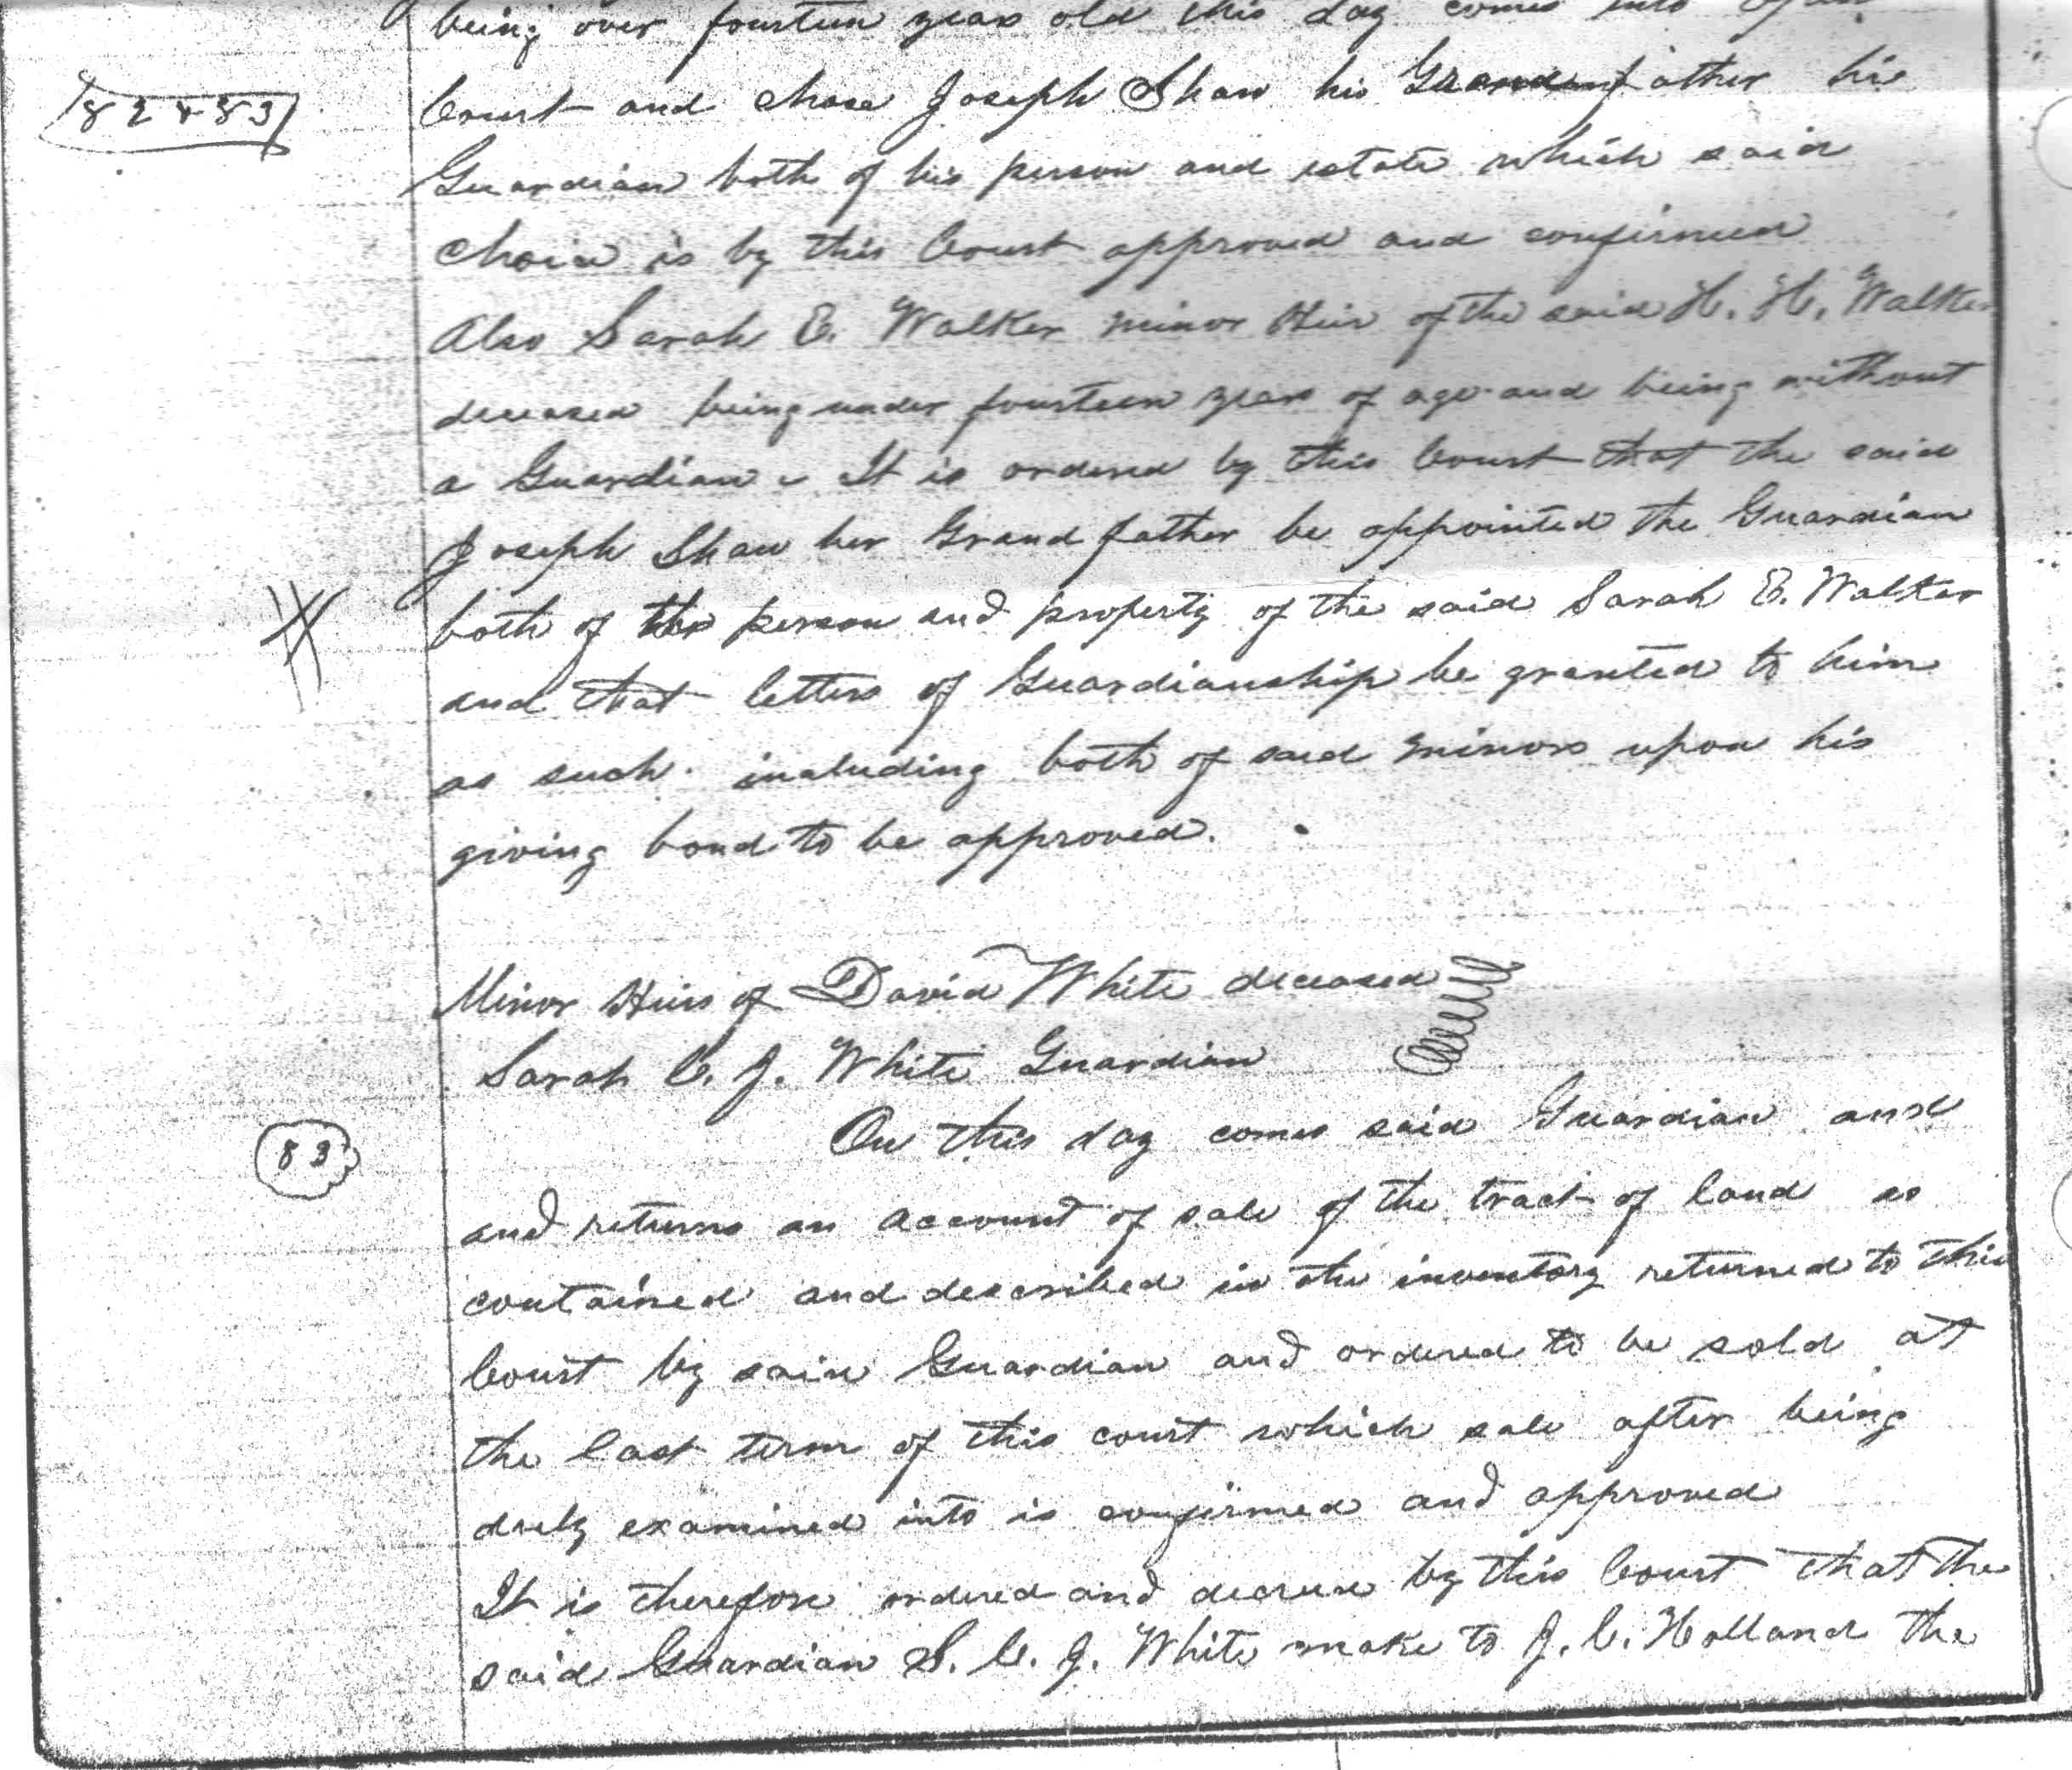 being over fourteen years old this day comes into open
82 & 83
Court and chose Joseph Shaw his Grandfather his
Guardian both of his person and estate which said
choice is by this Court approved and confirmed
Also Sarah E. Walker minor Heir of the said H. H. Walker
deceased being under fourteen years of age and being without
a Guardian It is ordered by this Court that the said
Joseph Shaw her Grand father be appointed the Guardian
both of the person and property of the said Sarah E. Walker
and that letters of Guardianship be granted to him
as such including both of said minors upon his
giving bond to be approved.
Minor Heirs of David White deceased
Sarah C. J. White Guardian
On this day comes said Guardian and
83
and returns an account of sale of the tract of land as
contained and described in the inventory returned to this
Court by said Guardian and ordered to be sold at
the last term of this court which sale after being
duly examined into is confirmed and approved
It is therefore ordered and decreed by this Court that the
said Guardian S. C. J. White make to J. C. Holland the